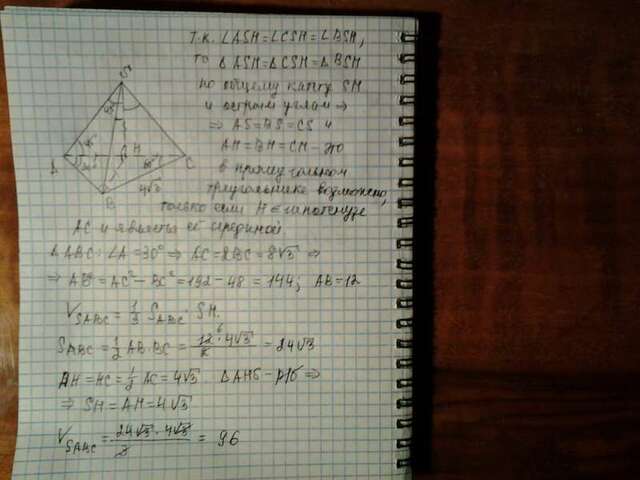 Т.к. ∠ASH=∠CSH=∠BSH,
то △ASH=△CSH=△BSH
по общему катету SH
и острым углам ⇒
⇒ AS=BS=CS и
AH=BH=CH - это
в прямоугольном
треугольнике возможно,
только если H ∈ гипотенузе
AC и является её серединой
S
45°
45°
A
H
60°
C
B
4√3
△ABC: ∠A=30° ⇒ AC=2BC=8√3 ⇒
⇒ AB²=AC²-BC²=192-48=144; AB=12
V_SABC = 1/3 S_ABC · SH.
S_ABC = 1/2 AB·BC = 12·4√3/2 = 24√3
6
AH=HC=1/2 AC=4√3. △AHS - р/б ⇒
⇒ SH=AH=4√3
V_SABC = 24√3·4√3/3 = 96